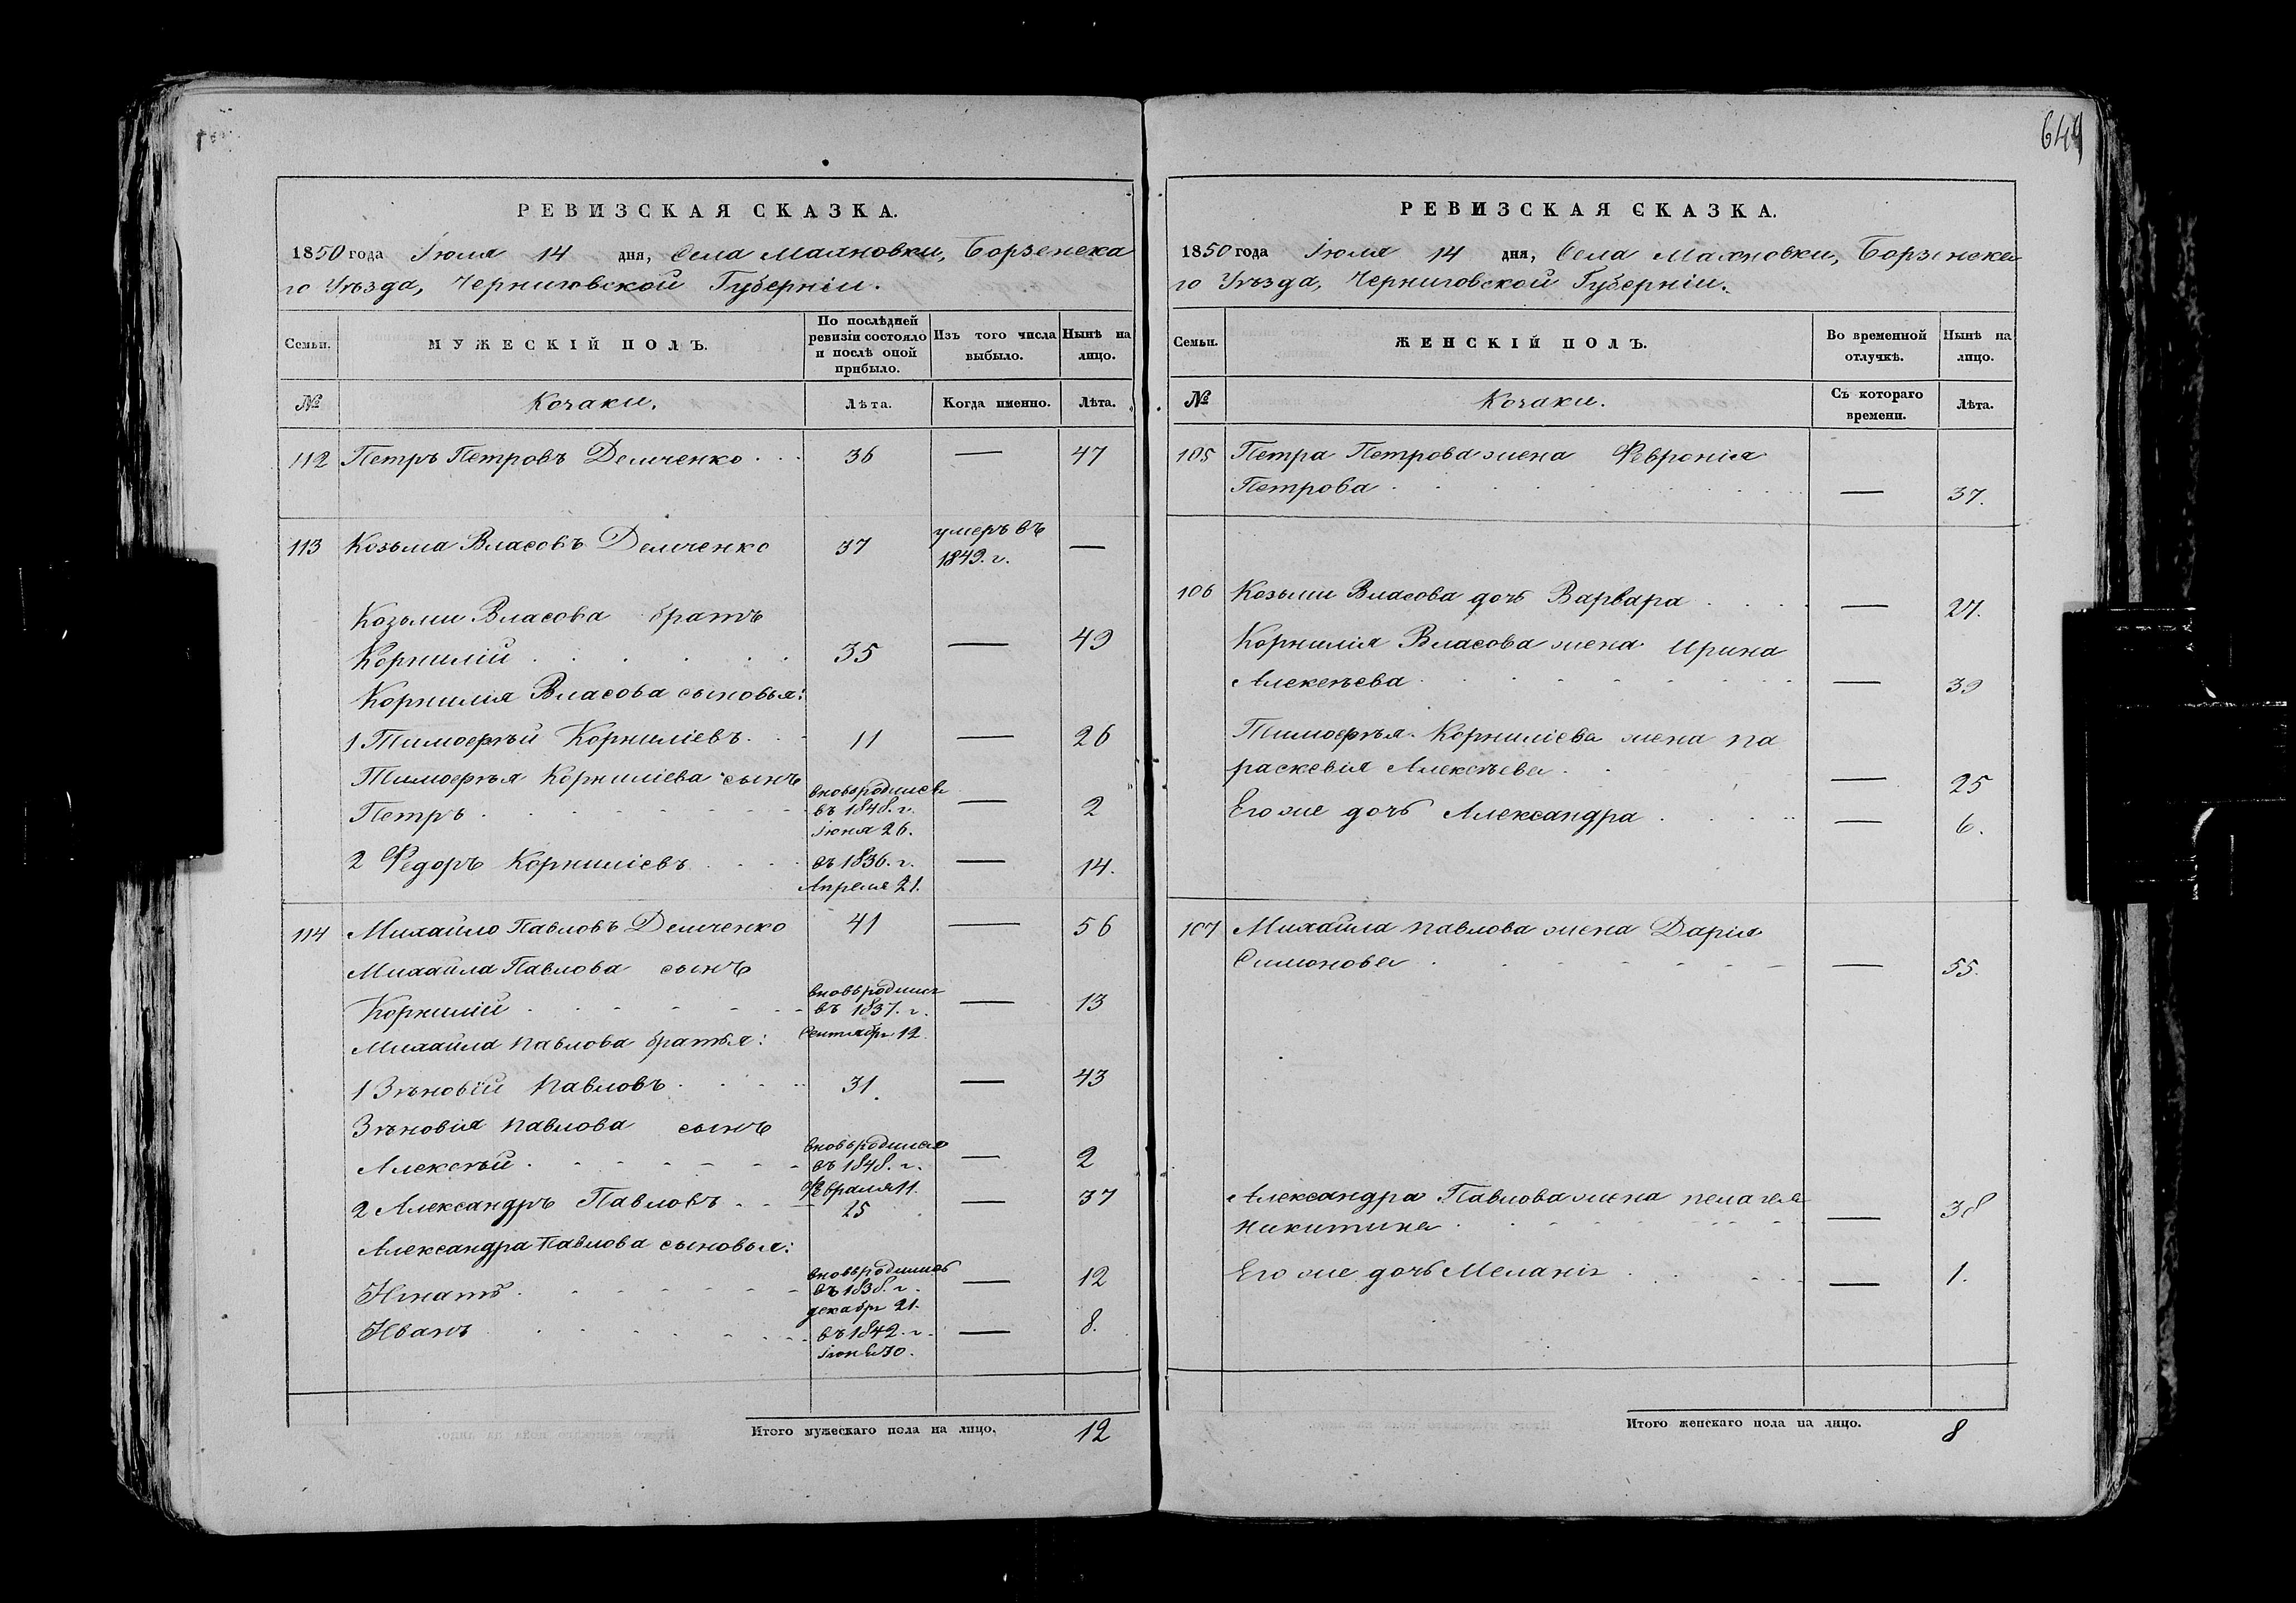 649
РЕВИЗСКАЯ СКАЗКА.
1850 года Іюля 14 дня, Села Малховки, Борзенска
го Уѣзда, Черниговской Губерніи.
Семьи.
МУЖЕСКІЙ ПОЛЪ.
По послѣдней ревизіи состояло и послѣ оной прибыло.
Изъ того числа выбыло.
Нынѣ на лицо.
№
Козаки.
Лѣта.
Когда именно.
Лѣта.
112 Петръ Петровъ Демченко 36 — 47
113 Козьма Власовъ Демченко 37 умеръ въ 1849. г. —
Козьмы Власова братъ
Корнилій 35 — 49
Корнилія Власова сыновья:
1 Тимоѳѣй Корниліевъ 11 — 26
Тимоѳѣя Корниліева сынъ
Петръ вновьродился въ 1848. г. Іюня 26. — 2
2 Федоръ Корниліевъ въ 1836. г. Апреля 21. — 14.
114 Михайло Павловъ Демченко 41 — 56
Михайла Павлова сынъ
Корнилій вновьродился въ 1837. г. Сентября 12. — 13
Михайла Павлова братья:
1 Зѣновій Павловъ 31. — 43
Зѣновія Павлова сынъ
Алексѣй вновьродился въ 1848. г. Февраля 11. — 2
2 Александръ Павловъ 25 — 37
Александра Павлова сыновья:
Игнатъ вновьродился въ 1838. г. декабря 21. — 12
Иванъ въ 1842. г. — 8.
Итого мужескаго пола на лицо. 12
РЕВИЗСКАЯ СКАЗКА.
1850 года Іюля 14 дня, Села Малховки, Борзенска
го Уѣзда, Черниговской Губерніи.
Семьи.
ЖЕНСКІЙ ПОЛЪ.
Во временной отлучкѣ.
Нынѣ на лицо.
№
Козаки.
Съ котораго времени.
Лѣта.
105 Петра Петрова жена Феврония
Петрова — 37.
106 Козьмы Власова дочь Варвара — 27.
Корнилія Власова жена Ирина
Алексѣева — 39
Тимоѳѣя Корниліева жена Па
раскевія Алексѣева — 25
Его же дочь Александра — 6.
107 Михайла Павлова жена Дарія
Симонова — 55.
Александра Павлова жена Пелагея
Никитина — 38
Его же дочь Меланія — 1.
Итого женскаго пола на лицо. 8